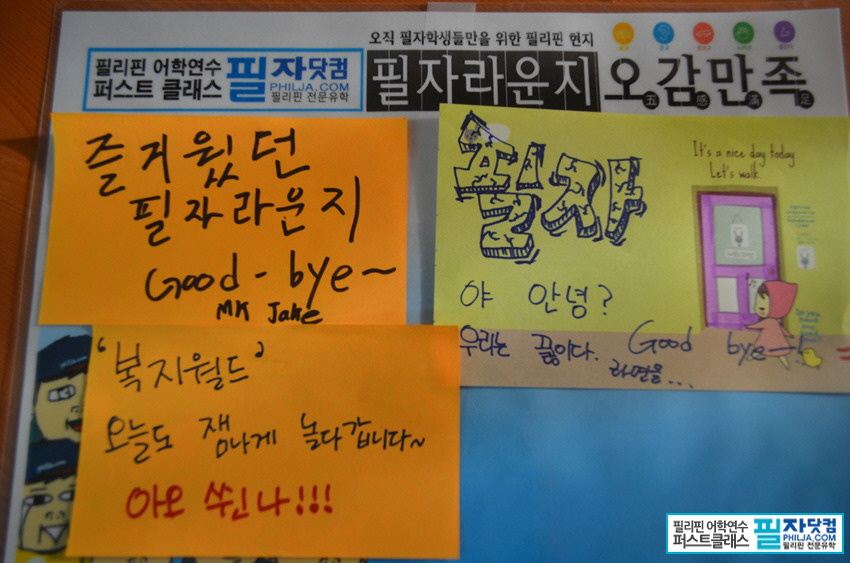 오직 필자학생들만을 위한 필리핀 현지
필리핀 어학연수
퍼스트 클래스
필자닷컴
PHILJA.COM
필리핀 전문유학
필자라운지 오감만족
五 感 滿 足
즐거웠던
필자라운지
Good-bye~
MK Jake
필자
야 안녕?
우리는 끓이다. Good bye-!
라면을...
It's a nice day today
Let's walk.
'복지월드'
오늘도 잼나게 놀다갑니다~
아오 쒼나!!!
필리핀 어학연수
퍼스트클래스
필자닷컴
PHILJA.COM
필리핀 전문유학